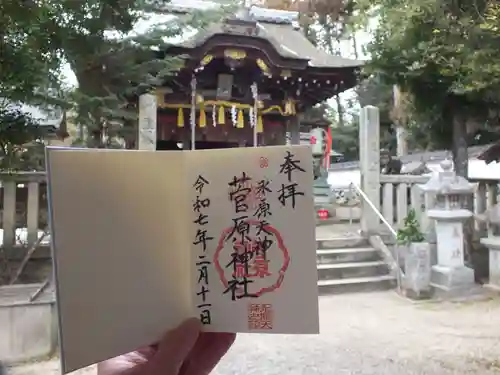 奉拝
永原天神
菅原神社
令和七年二月十一日